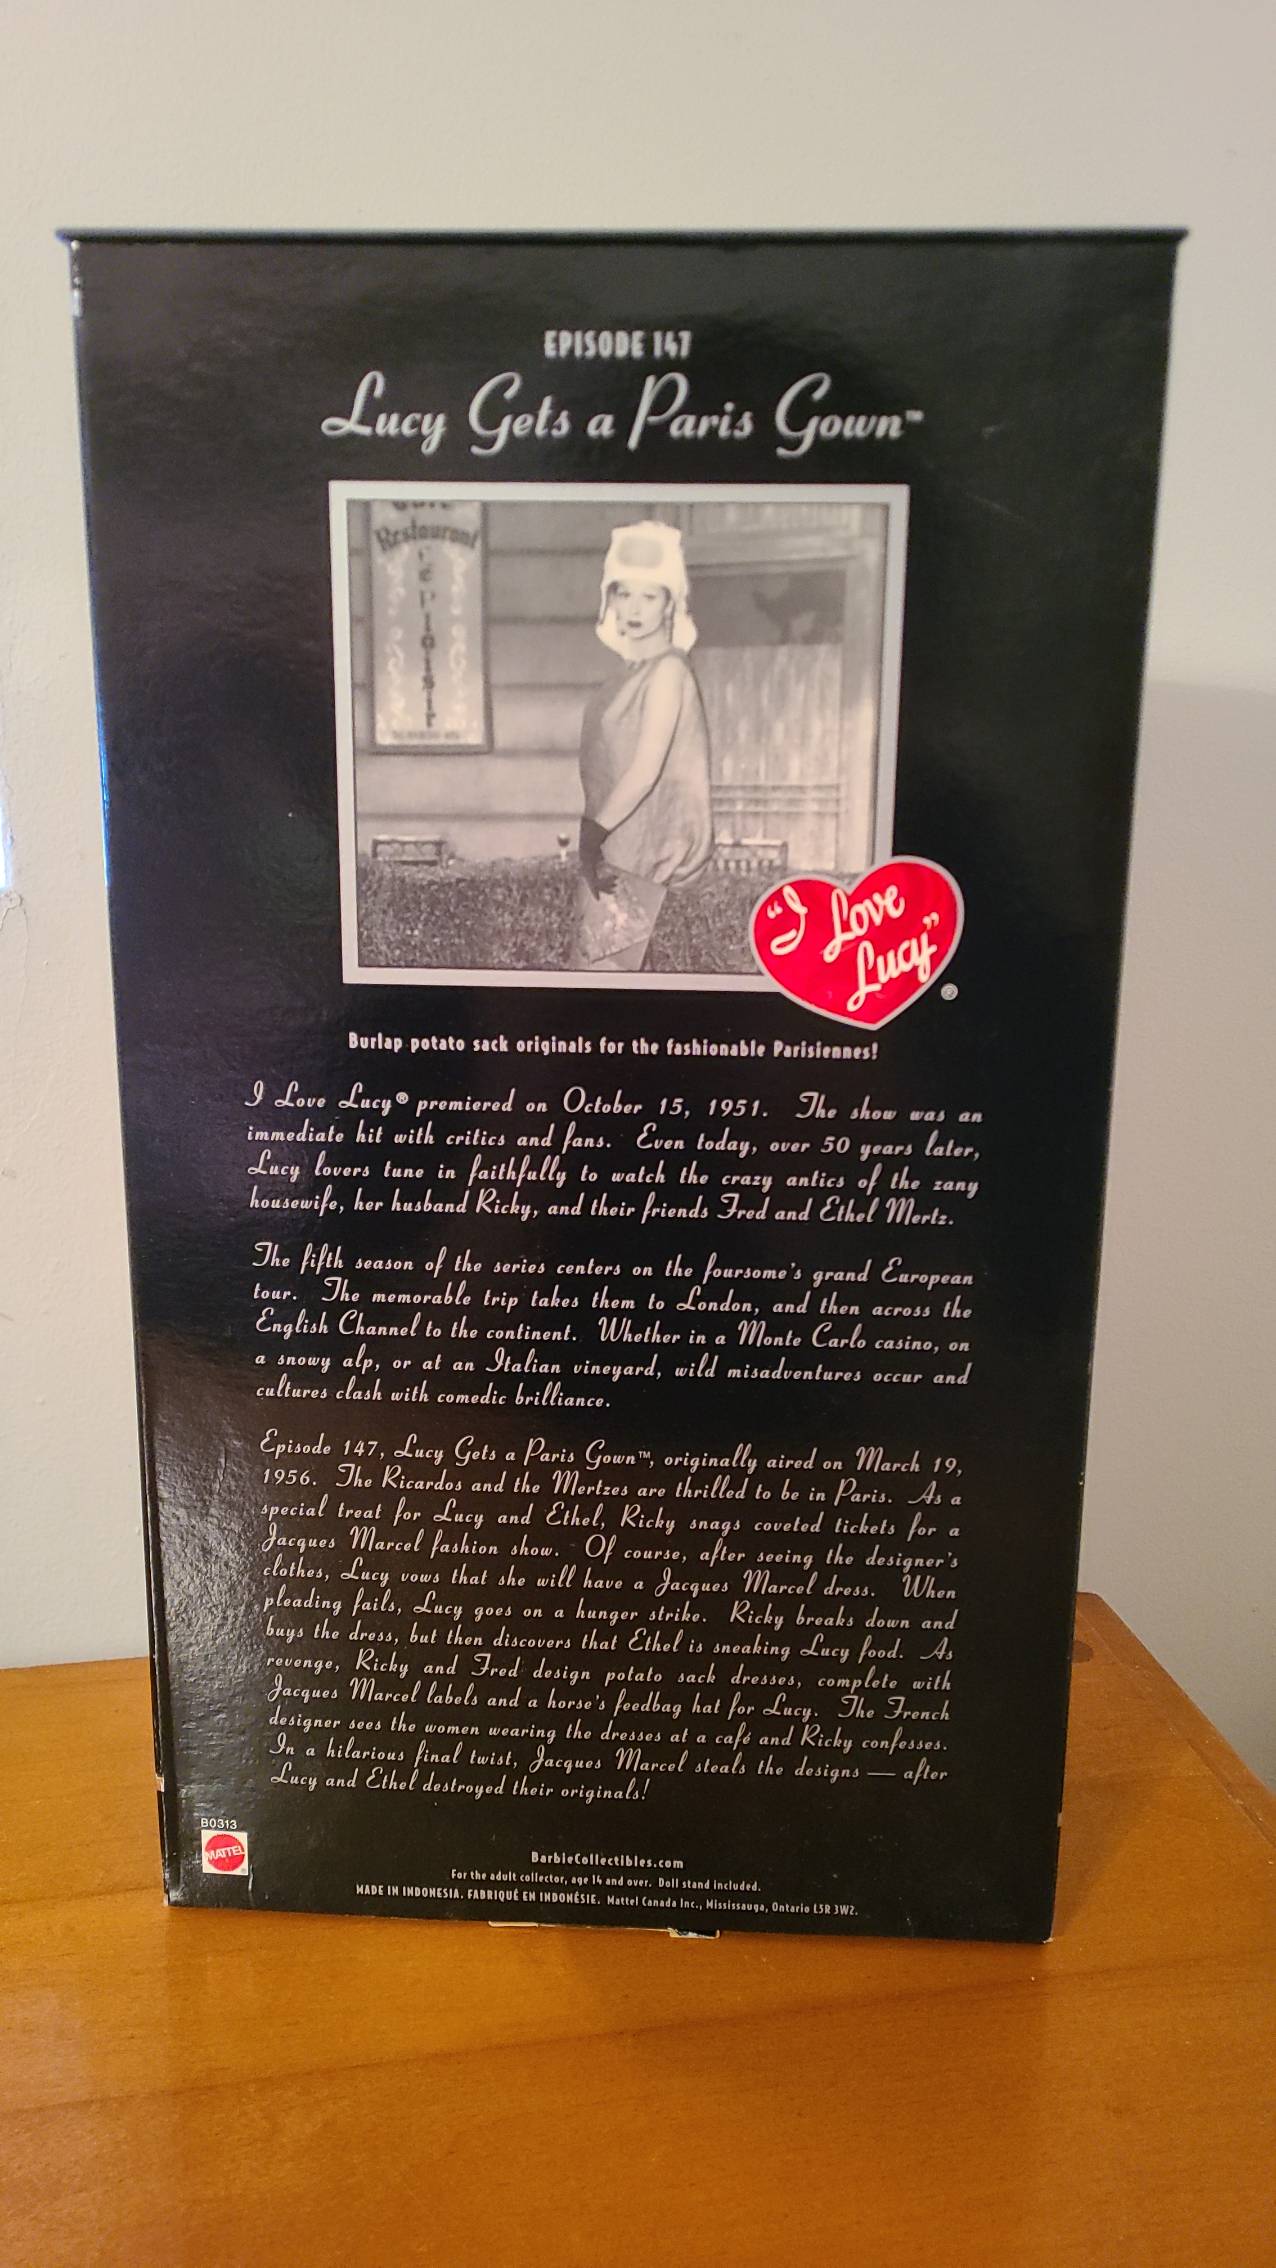 EPISODE 147
Lucy Gets a Paris Gown™
Restaurant
"I Love
Lucy"®
Burlap potato sack originals for the fashionable Parisiennes!
I Love Lucy® premiered on October 15, 1951. The show was an
immediate hit with critics and fans. Even today, over 50 years later,
Lucy lovers tune in faithfully to watch the crazy antics of the zany
housewife, her husband Ricky, and their friends Fred and Ethel Mertz.
The fifth season of the series centers on the foursome's grand European
tour. The memorable trip takes them to London, and then across the
English Channel to the continent. Whether in a Monte Carlo casino, on
a snowy alp, or at an Italian vineyard, wild misadventures occur and
cultures clash with comedic brilliance.
Episode 147, Lucy Gets a Paris Gown™, originally aired on March 19,
1956. The Ricardos and the Mertzes are thrilled to be in Paris. As a
special treat for Lucy and Ethel, Ricky snags coveted tickets for a
Jacques Marcel fashion show. Of course, after seeing the designer's
clothes, Lucy vows that she will have a Jacques Marcel dress. When
pleading fails, Lucy goes on a hunger strike. Ricky breaks down and
buys the dress, but then discovers that Ethel is sneaking Lucy food. As
revenge, Ricky and Fred design potato sack dresses, complete with
Jacques Marcel labels and a horse's feedbag hat for Lucy. The French
designer sees the women wearing the dresses at a café and Ricky confesses.
In a hilarious final twist, Jacques Marcel steals the designs — after
Lucy and Ethel destroyed their originals!
B0313
MATTEL
BarbieCollectibles.com
For the adult collector, age 14 and over. Doll stand included.
MADE IN INDONESIA. FABRIQUÉ EN INDONÉSIE. Mattel Canada Inc., Mississauga, Ontario L5R 3W2.